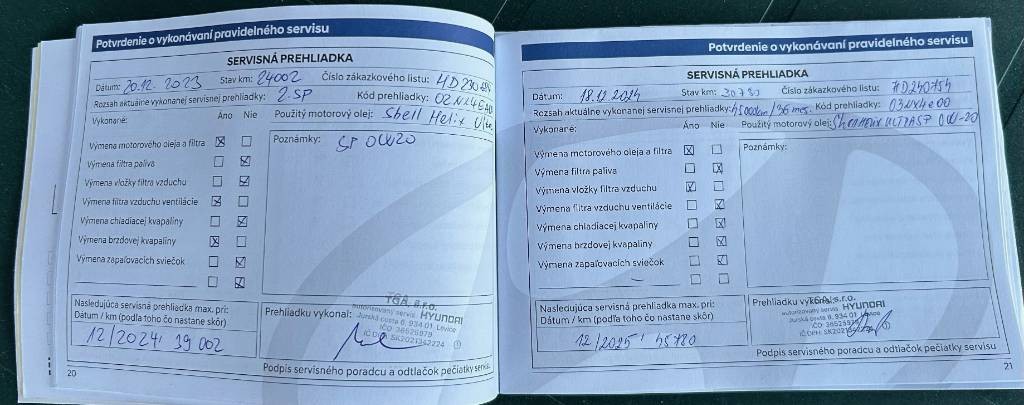 Potvrdenie o vykonávaní pravidelného servisu
SERVISNÁ PREHLIADKA
Dátum: 20.12. 2023 Stav km: 24002 Číslo zákazkového listu:
Rozsah aktuálne vykonanej servisnej prehliadky: 2.SP Kód prehliadky:
Vykonané: Áno Nie Použitý motorový olej: Shell Helix
Výmena motorového oleja a filtra
Výmena filtra paliva
Výmena vložky filtra vzduchu
Výmena filtra vzduchu ventilácie
Výmena chladiacej kvapaliny
Výmena brzdovej kvapaliny
Výmena zapaľovacích sviečok
Poznámky: SP 0W20
Nasledujúca servisná prehliadka max. pri:
Dátum / km (podľa toho čo nastane skôr)
12/2024 39 002
Prehliadku vykonal:
TGA, s.r.o.
autorizovaný servis HYUNDAI
Jurská cesta 6, 934 01 Levice
IČO: 36525979
IČ DPH: SK2021342224
Podpis servisného poradcu a odtlačok pečiatky servisu
20
Potvrdenie o vykonávaní pravidelného servisu
SERVISNÁ PREHLIADKA
Dátum: 18.12 2024 Stav km: 30780 Číslo zákazkového listu: HD240754
Rozsah aktuálne vykonanej servisnej prehliadky: 45000km/36 mes. Kód prehliadky:
Vykonané: Áno Nie Použitý motorový olej: 0W-20
Výmena motorového oleja a filtra
Výmena filtra paliva
Výmena vložky filtra vzduchu
Výmena filtra vzduchu ventilácie
Výmena chladiacej kvapaliny
Výmena brzdovej kvapaliny
Výmena zapaľovacích sviečok
Poznámky:
Nasledujúca servisná prehliadka max. pri:
Dátum / km (podľa toho čo nastane skôr)
12/2025 45780
Prehliadku vykonal:
TGA, s.r.o.
autorizovaný servis HYUNDAI
Jurská cesta 6, 934 01 Levice
IČO: 36525979
IČ DPH: SK2021342224
Podpis servisného poradcu a odtlačok pečiatky servisu
21